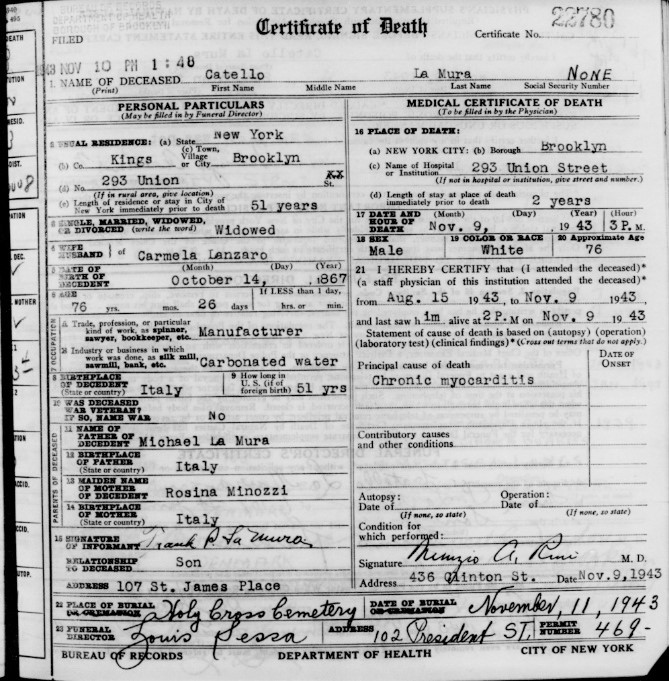 BUREAU OF RECORDS
DEPARTMENT OF HEALTH
BOROUGH OF BROOKLYN
FILED
1943 NOV 10 PM 1:48
Certificate of Death
Certificate No. 22780
1. NAME OF DECEASED Catello La Mura NONE
(Print) First Name Middle Name Last Name Social Security Number
PERSONAL PARTICULARS
(May be filled in by Funeral Director)
2 USUAL RESIDENCE: (a) State New York
(b) Co. Kings (c) Town, Village or City Brooklyn
(d) No. 293 Union St.
(If in rural area, give location)
(e) Length of residence or stay in City of New York immediately prior to death 51 years
3 SINGLE, MARRIED, WIDOWED, OR DIVORCED (write the word) Widowed
4 WIFE HUSBAND } of Carmela Lanzaro
5 DATE OF BIRTH OF DECEDENT (Month) (Day) (Year) October 14, 1867
6 AGE 76 yrs. mos. 26 days If LESS than 1 day, hrs. or min.
7 OCCUPATION
A Trade, profession, or particular kind of work, as spinner, sawyer, bookkeeper, etc. Manufacturer
B Industry or business in which work was done, as silk mill, sawmill, bank, etc. Carbonated water
8 BIRTHPLACE OF DECEDENT (State or country) Italy
9 How long in U. S. (if of foreign birth) 51 yrs
10 WAS DECEASED WAR VETERAN? IF SO, NAME WAR No
PARENTS OF DECEASED
11 NAME OF FATHER OF DECEDENT Michael La Mura
12 BIRTHPLACE OF FATHER (State or country) Italy
13 MAIDEN NAME OF MOTHER OF DECEDENT Rosina Minozzi
14 BIRTHPLACE OF MOTHER (State or country) Italy
15 SIGNATURE OF INFORMANT Frank P. La Mura
RELATIONSHIP TO DECEASED Son
ADDRESS 107 St. James Place
MEDICAL CERTIFICATE OF DEATH
(To be filled in by the Physician)
16 PLACE OF DEATH:
(a) NEW YORK CITY: (b) Borough Brooklyn
(c) Name of Hospital or Institution 293 Union Street
(If not in hospital or institution, give street and number.)
(d) Length of stay at place of death immediately prior to death 2 years
17 DATE AND HOUR OF DEATH (Month) (Day) (Year) (Hour) Nov. 9, 1943 3 P. M.
18 SEX Male 19 COLOR OR RACE White 20 Approximate Age 76
21 I HEREBY CERTIFY that (I attended the deceased)*
(a staff physician of this institution attended the deceased)*
from Aug. 15 1943, to Nov. 9 1943,
and last saw him alive at 2 P. M on Nov. 9 1943
Statement of cause of death is based on (autopsy) (operation)
(laboratory test) (clinical findings)* (Cross out terms that do not apply.)
Principal cause of death DATE OF ONSET
Chronic myocarditis
Contributory causes and other conditions
Autopsy: Operation:
Date of Date of
(If none, so state) (If none, so state)
Condition for which performed:
Signature M. D.
Address 436 Clinton St. Date Nov. 9, 1943
22 PLACE OF BURIAL OR CREMATION Holy Cross Cemetery DATE OF BURIAL OR CREMATION November, 11, 1943
23 FUNERAL DIRECTOR Louis Pessa ADDRESS 102 President ST. PERMIT NUMBER 469-
BUREAU OF RECORDS DEPARTMENT OF HEALTH CITY OF NEW YORK